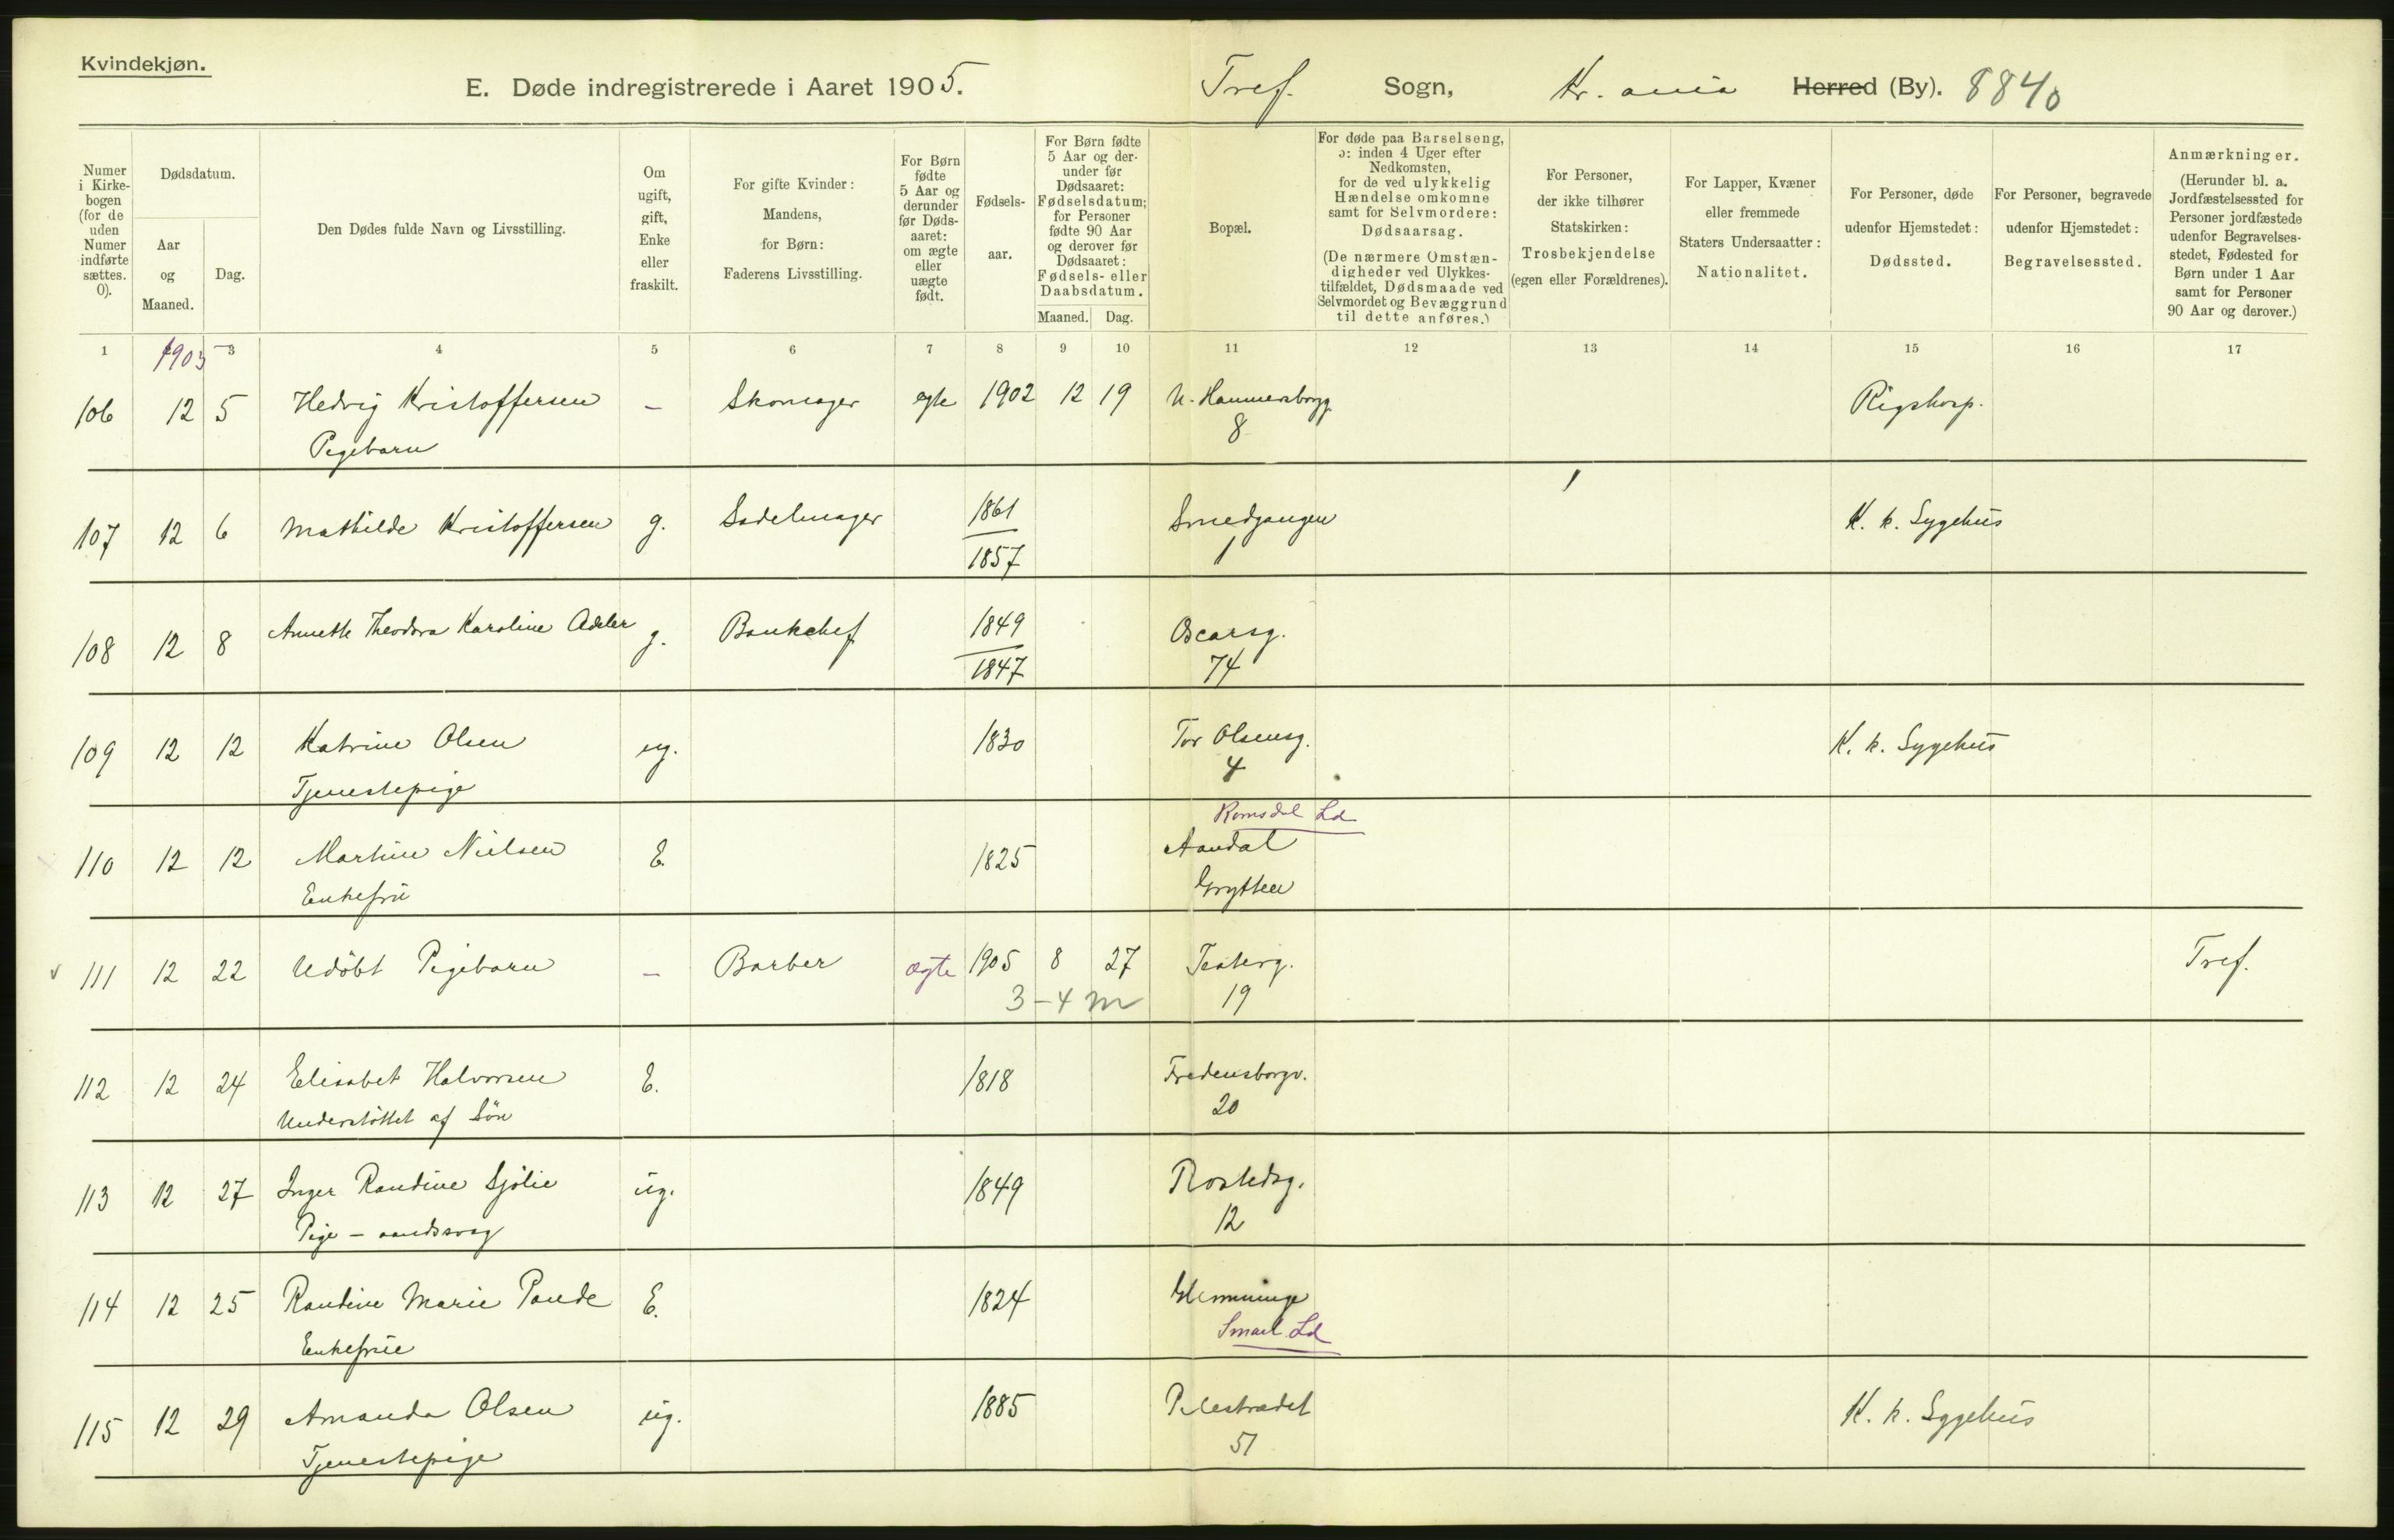 Kvindekjøn.
E. Døde indregistrerede i Aaret 1905. Tref. Sogn, Kr.ania Herred (By). 8840
Numer i Kirke-bogen (for de uden Numer indførte sættes. 0).
Dødsdatum.
Aar og Maaned.
Dag.
Den Dødes fulde Navn og Livsstilling.
Om ugift, gift, Enke eller fraskilt.
For gifte Kvinder: Mandens, for Børn: Faderens Livsstilling.
For Børn fødte 5 Aar og derunder før Døds-aaret: om ægte eller uægte født.
Fødsels-aar.
For Børn fødte 5 Aar og der-under før Dødsaaret: Fødselsdatum; for Personer fødte 90 Aar og derover før Dødsaaret: Fødsels- eller Daabsdatum.
Maaned. Dag.
Bopæl.
For døde paa Barselseng, ɔ: inden 4 Uger efter Nedkomsten, for de ved ulykkelig Hændelse omkomne samt for Selvmordere: Dødsaarsag.
(De nærmere Omstæn-digheder ved Ulykkes-tilfældet, Dødsmaade ved Selvmordet og Bevæggrund til dette anføres.)
For Personer, der ikke tilhører Statskirken: Trosbekjendelse (egen eller Forældrenes).
For Lapper, Kvæner eller fremmede Staters Undersaatter: Nationalitet.
For Personer, døde udenfor Hjemstedet: Dødssted.
For Personer, begravede udenfor Hjemstedet: Begravelsessted.
Anmærkninger.
(Herunder bl. a. Jordfæstelsessted for Personer jordfæstede udenfor Begravelses-stedet, Fødested for Børn under 1 Aar samt for Personer 90 Aar og derover.)
1 2 3 4 5 6 7 8 9 10 11 12 13 14 15 16 17
1905
106 12 5 Hedvig Kristoffersen – Skomager egte 1902 12 19 N. Hammersborgg. Rigshosp.
Pigebarn 8
107 12 6 Mathilde Kristoffersen g. Sadelmager 1861 Smedgangen K. k. Sygehus
1857 1
108 12 8 Annette Theodora Karoline Adeler g. Bankchef 1849 Oscarsg.
1847 74
109 12 12 Katrine Olsen ug. 1830 Tor Olsensg. K. k. Sygehus
Tjenestepige 4
Romsdal Ld
110 12 12 Martine Nielsen E. 1825 Aandal
Enkefru Grytten
111 12 22 Udöbt Pigebarn – Barber ægte 1905 8 27 Teaterg. Tref.
3–4 m 19
112 12 24 Elisabet Halvorsen E. 1818 Fredensborgv.
Understöttet af Sön 20
113 12 27 Inger Randine Sjölie ug. 1849 Rostedsg.
Pige – aandssvag 12
114 12 25 Randine Marie Paude E. 1824 Glemminge
Enkefrue Smaal. Ld
115 12 29 Amanda Olsen ug. 1885 Pilestrædet K. k. Sygehus
Tjenestepige 51